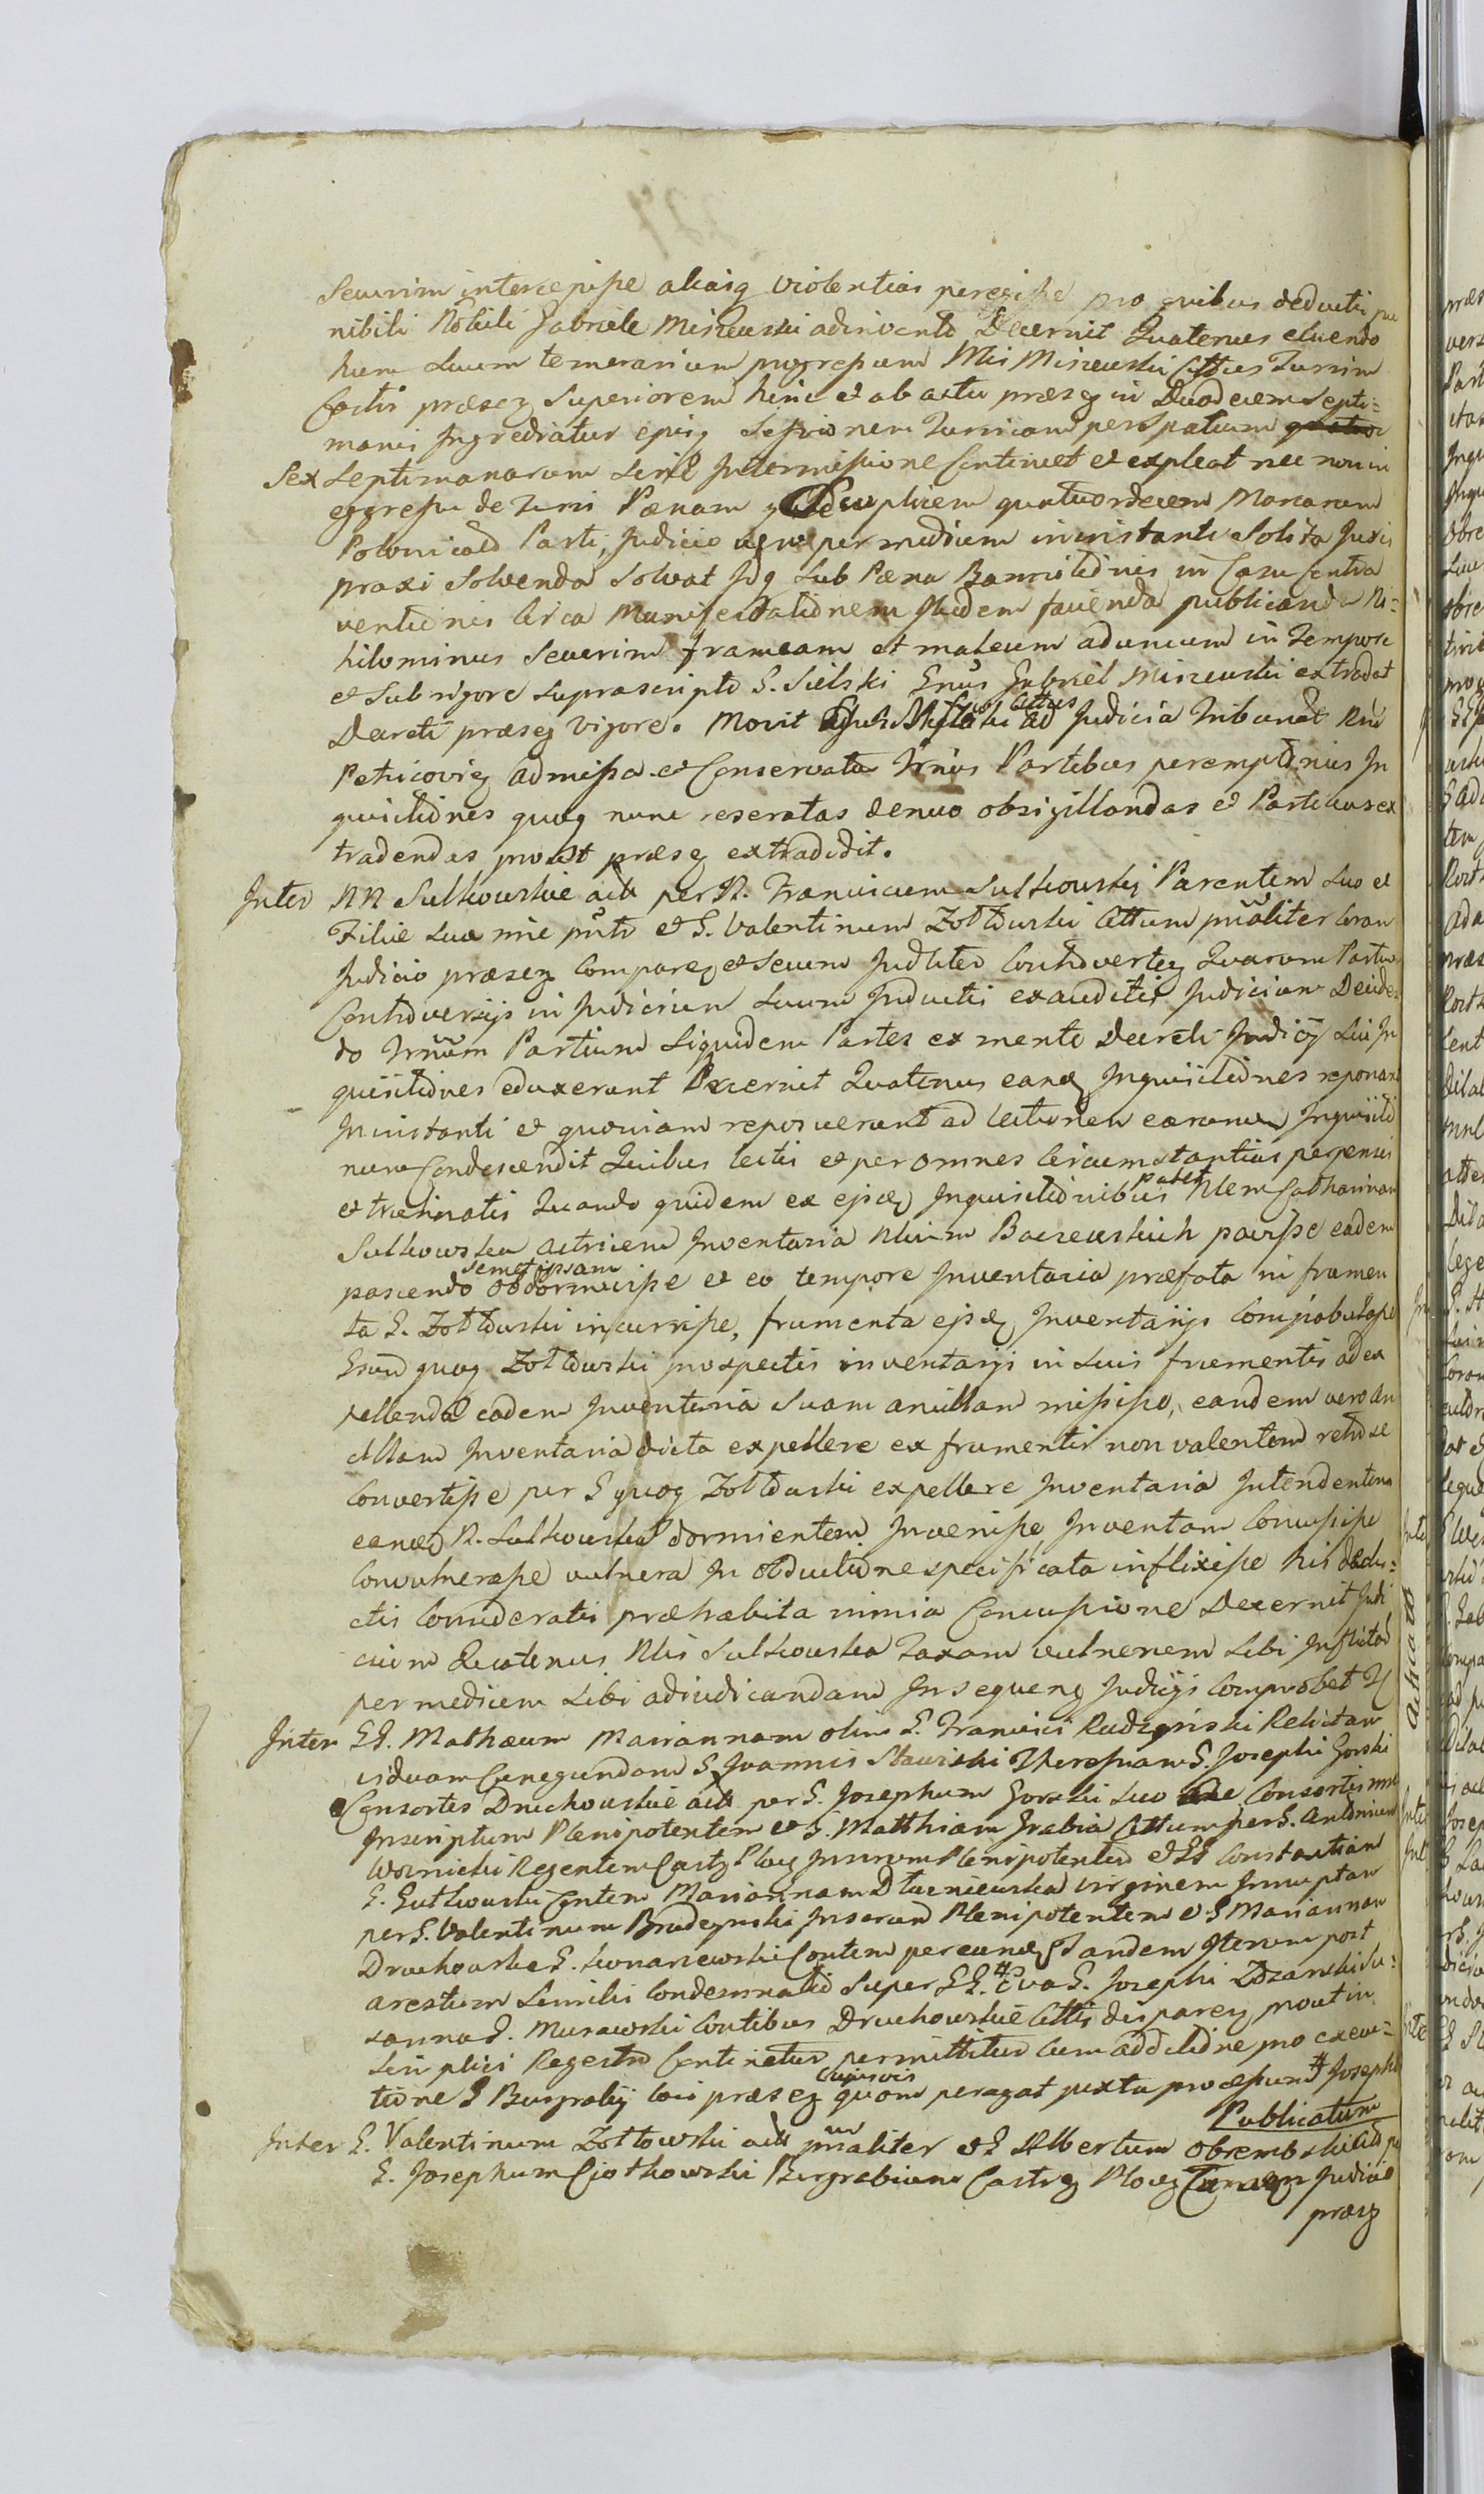 Securim intercepisse aliasq violentias peregisse pro quibus deducti pu
nibili Nobili Gabriele Miszewski adinvento Decernit Quatenus eluendo
hunc suum temerarium progressum Nlis Miszewski Cittus Turrim
Castri præsez superiorem hinc et ab actu præsez in Duodecem Septi=
manis Ingrediatur ejusq Sessionem Turricam per Spatium
Sex Septimanarum sine Intermissione Contineat et expleat nec non in
egressu de Turri Pænam quatuordecem Marcarum
Polonicald Parti, Judicio vero per medium in instanti Solita Juris
praxi Solvenda Solvat Idq sub Pæna Bannitionis in Casu Contra
ventionis circa Manifestationem Ibidem faciendo publicanda Ni=
hilominus Securim frameam et maleum aduncum in Tempore
et Sub rigore suprascripto G. Sielski Gnus Gabriel Miszewski extradat
Decreti præsez vigore. Movit Cittus ad Judicia Tribunat Rni
Petricovieg admissa et Conservata Trnus Partibus peremptorius In
quisitiones quoq nunc reseratas denuo obsigillandas et Partibus ex
tradendas prout præsez extradidit.
Inter NN Sulkowskie act per N. Franciscum Sulkowski Parentem suo et
Filiæ suæ nne pntt et G. Valentinum Zołtowski Cittum pnaliter Coram
Judicio præsez Comparez et Secum Juditer Controvertez Quarum Partium
Controversijs in Judicium suum Inductis exauditis Judicium Deciden
do Trnum Partium Siquidem Partes ex mente Decreti Judicij sui In
quisitiones eduxerunt Decernit Quatenus easdem Inquisitiones reponant
In instanti et quoniam reposuerunt ad lecturam earum Inquisitio
num Condescendit Quibus lectis et per omnes Circumstantias perpensis
et trutinatis Quando quidem ex ejsdem Inquisitionibus patet Nlem Catharinam
Sulkowska actricem Inventaria Nlium Baczewskich pavisse eadem
pascendo semetipsam obdormivisse et eo tempore Inventaria præfata in frumen
ta G. Zołtowski incurrisse, frumenta ejsdem Inventarijs Compabulasse
Gnum quoq Zołtowski prospectis inventarijs in suis frumentis ad ex
pellenda eadem Inventaria suam ancillam misisse, eandem vero An
cillam Inventaria dicta expellere ex frumentis non valentem retro se
Convertisse per G quoq Zołtowski expellere Inventaria Intendentem
eandem N. Sulkowska dormientem Invenisse Inventam Concussisse
Convulnerasse vulnera In obductione specificata inflixisse his dedu=
ctis Consideratis præhabita nimia Concussione Decernit Judi
cium Quatenus Nlis Sulkowska Taxam vulnerum sibi Inflictor
per medicum sibi adiudicandam In sequenz Judicijs Comprobet
Inter GG. Mathæum Mariannam olim G. Francisci Rudzynski Relictam
viduam Cunegundam G Joannis Stawiski Theresnam G. Josephi Gorski
Consortes Druchowskie act per G. Josephum Gorski suo Consortis nne
Inscriptum Plenipotentem et G. Matthiam Grabia Cittum per G. Antonium
Woznicki Regentem Castz Ploz Insrum Plenipotentem et GG Constantiam
G. Gutkowski Contem Mariannam Dłuzniewska virginem Innuptam
per G. Valentinum Brudzynski Insrum Plenipotentem et G Mariannam
Druchowska G. Konarzewski Contem per eundem Tandem Iterum post
arestum Similis Condemnatio super GG. # Eva G. Josephi Zdzarski Su=
sanna G. Murawski Contibus Druchowskie Cittis disparez, prout in
simplici Regestro Continetur permittitur cum additione pro execu=
tione G Burgrabij loci præsez cujusvis quam peragat juxta processum # Josephi
Publicatum
Inter G. Valentinum Zołtowski act pnaliter et G Albertum Obrembski Citt per
G. Josephum Ciołkowski Burgrabium Castrz Plocz Coram Judicio
præsz